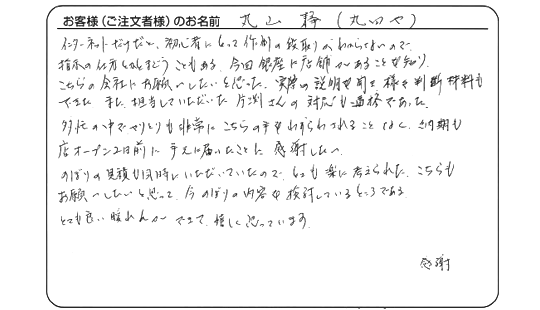 お客様(ご注文者様)のお名前 丸山 静 (丸山や)
インターネットだけだと、初心者にとって作制の段取りがわからないので、
指示の仕方もとまどうこともある。今回銀座に店舗があることを知り、
こちらの会社にお願いしたいと思った。実際の説明を聞き様々判断材料も
できた。また、担当していただいた片渕さんの対応も適格であった。
多忙の中でやりとりも非常にこちらの手をわずらわされることなく、納期も
店オープン2日前に手元に届いたことに感謝したい。
のぼりの見積も同時にいただいていたので、とても楽に考えられた。こちらも
お願いしたいと思って、今のぼりの内容を検討しているところである。
とても良い暖れんができて、嬉しく思っています。
感謝